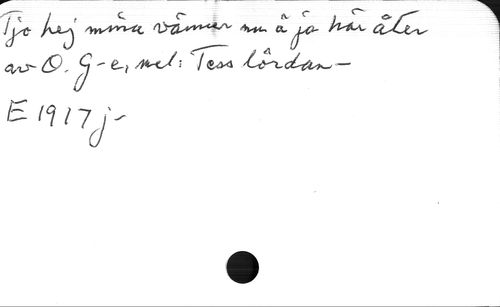 Tjo hej mina vänner nu ä ja här åter
av O. G-e, mel: Tess lördan-
E 1917 j-